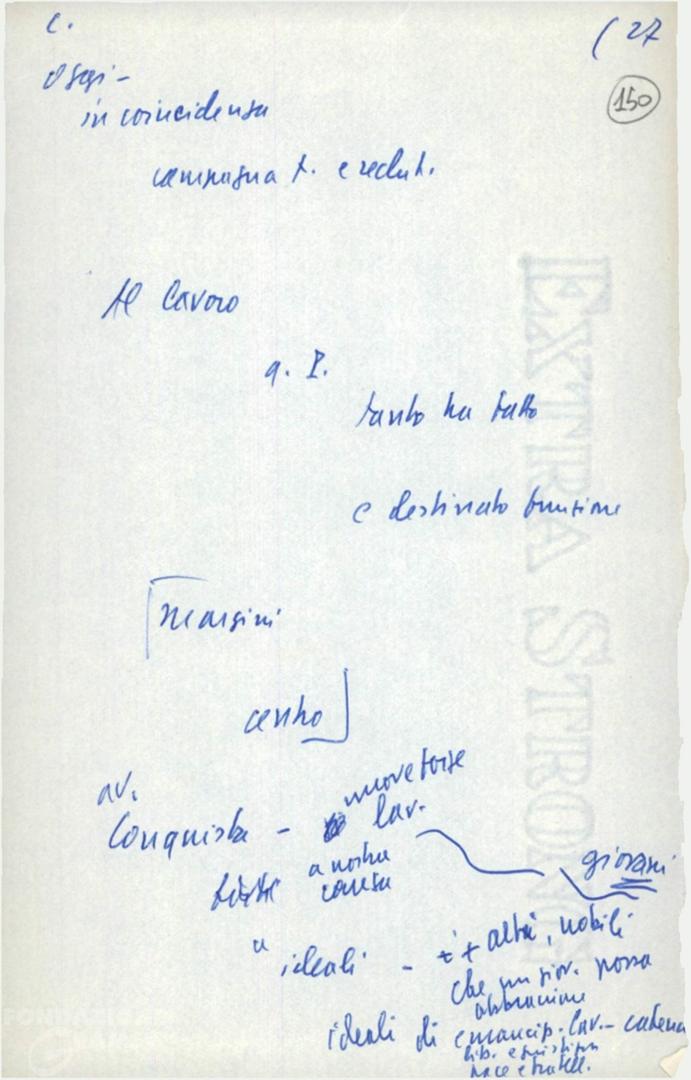 c.
( 27
150
oggi -
in coincidenza
campagna t. e reclut.
Al lavoro
q. P.
tanto ha fatto
e destinato funzione
margini
centro
av.
nuove forze
Conquista - lav.
a nostra
causa
giovani
" ideali - i + alti, nobili
che un giov. possa
abbracciare
ideali di emancip. lav. - catena
lib. e giustizia
pace e fratell.
EXTRA STRONG